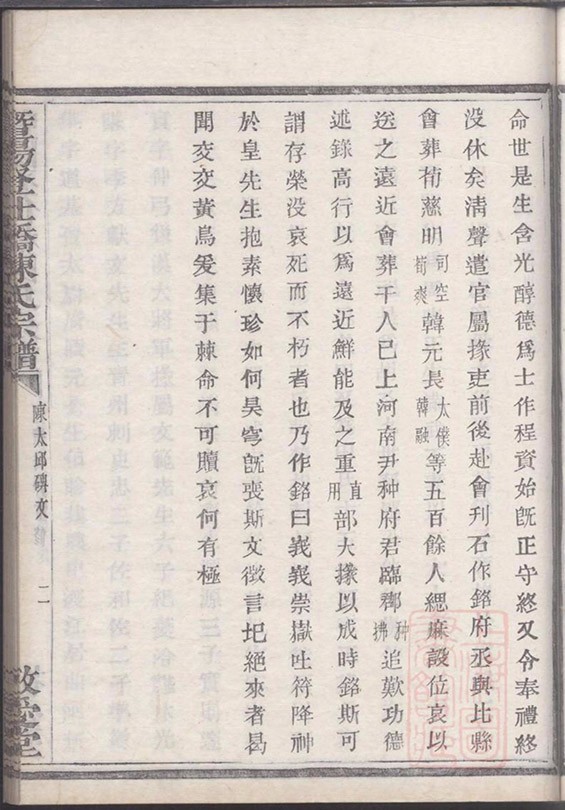 命世是生含光醇德爲士作程資始旣正守終又令奉禮終
没休矣淸聲遣官屬掾吏前後赴會刋石作銘府丞與比縣
會葬荀慈明司空荀爽韓元長太僕韓融等五百餘人緦麻設位哀以
送之遠近會葬千人已上河南尹种府君臨郡种拂追歎功德
述錄高行以爲遠近鮮能及之重直用部大掾以成時銘斯可
謂存榮没哀死而不朽者也乃作銘曰峩峩崇嶽吐符降神
於皇先生抱素懷珍如何昊穹旣喪斯文徴言圯絕來者曷
聞交交黃鳥爰集于棘命不可贖哀何有極
暨陽陳氏宗譜
陳太邱碑文
二